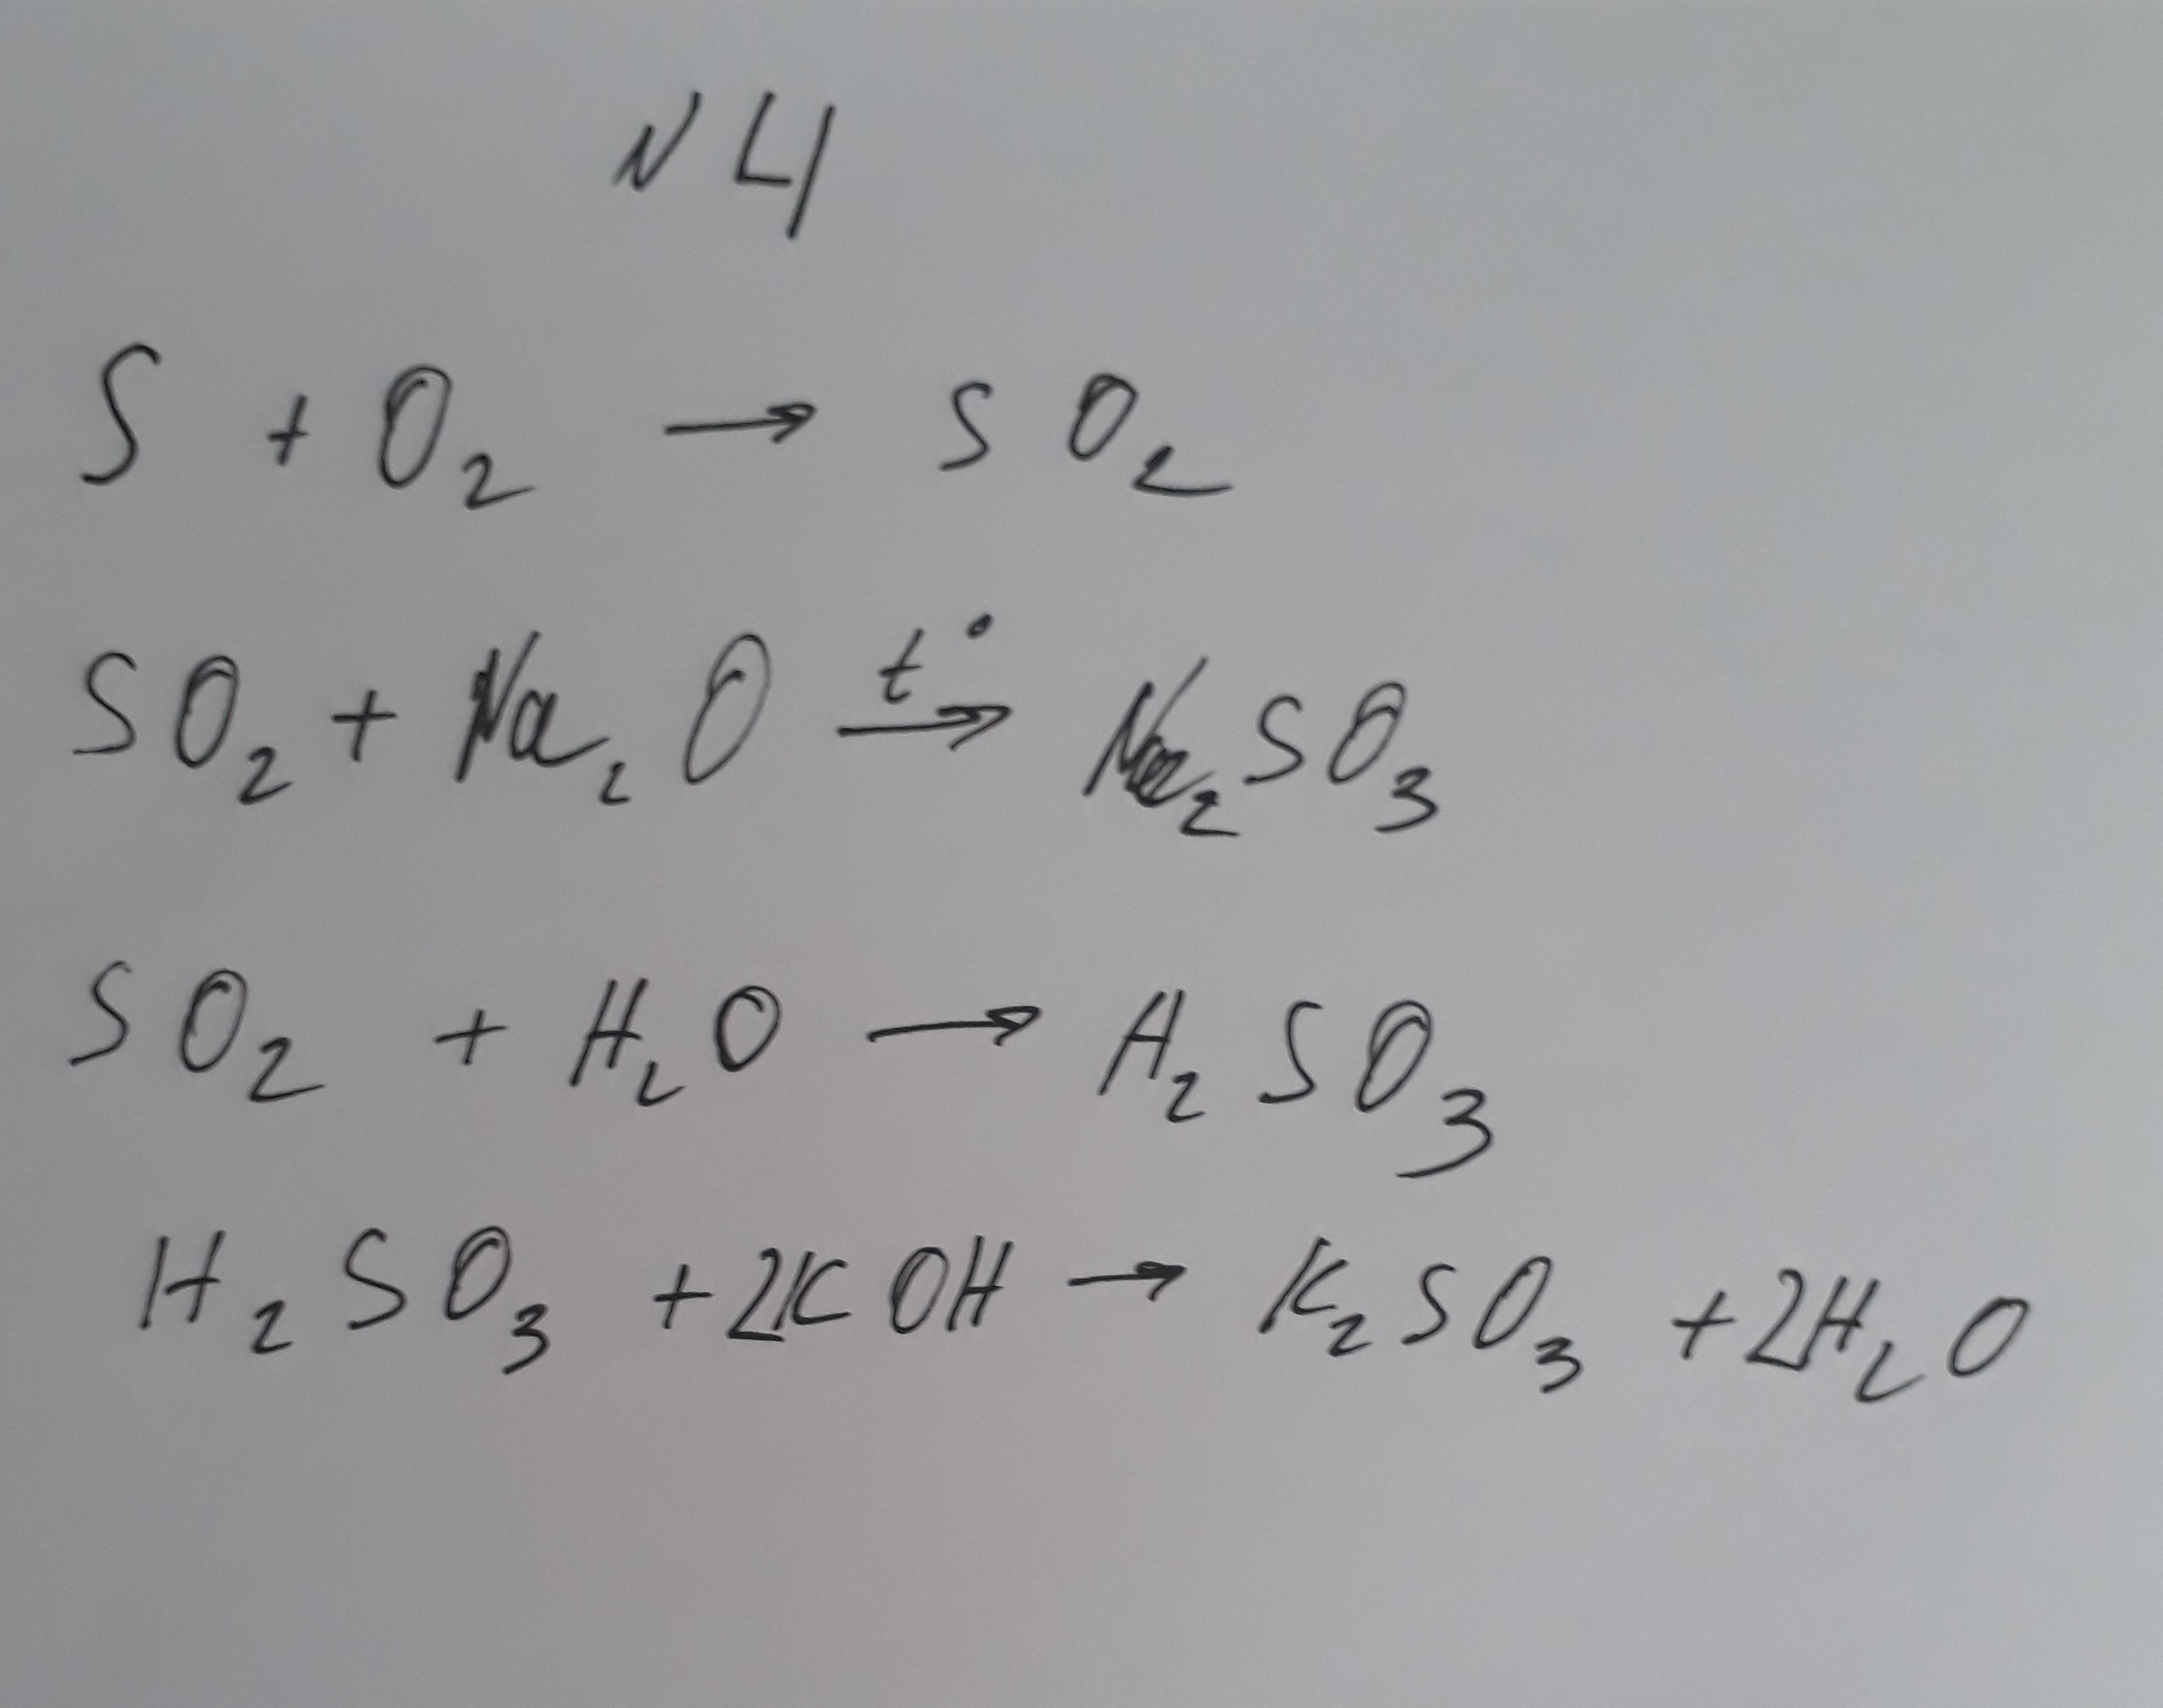 N 4
S + O₂ → SO₂
SO₂ + Na₂O t°→ Na₂SO₃
SO₂ + H₂O → H₂SO₃
H₂SO₃ + 2KOH → K₂SO₃ + 2H₂O